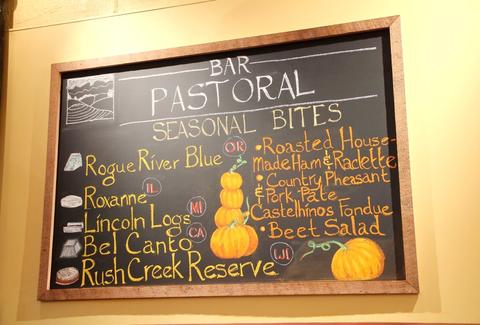 BAR
PASTORAL
SEASONAL BITES
Rogue River Blue OR
Roxanne IL
Lincoln Logs MI
Bel Canto CA
Rush Creek Reserve WI
• Roasted House-
Made Ham & Raclette
• Country Pheasant
& Pork Pate
Castelhinos Fondue
• Beet Salad